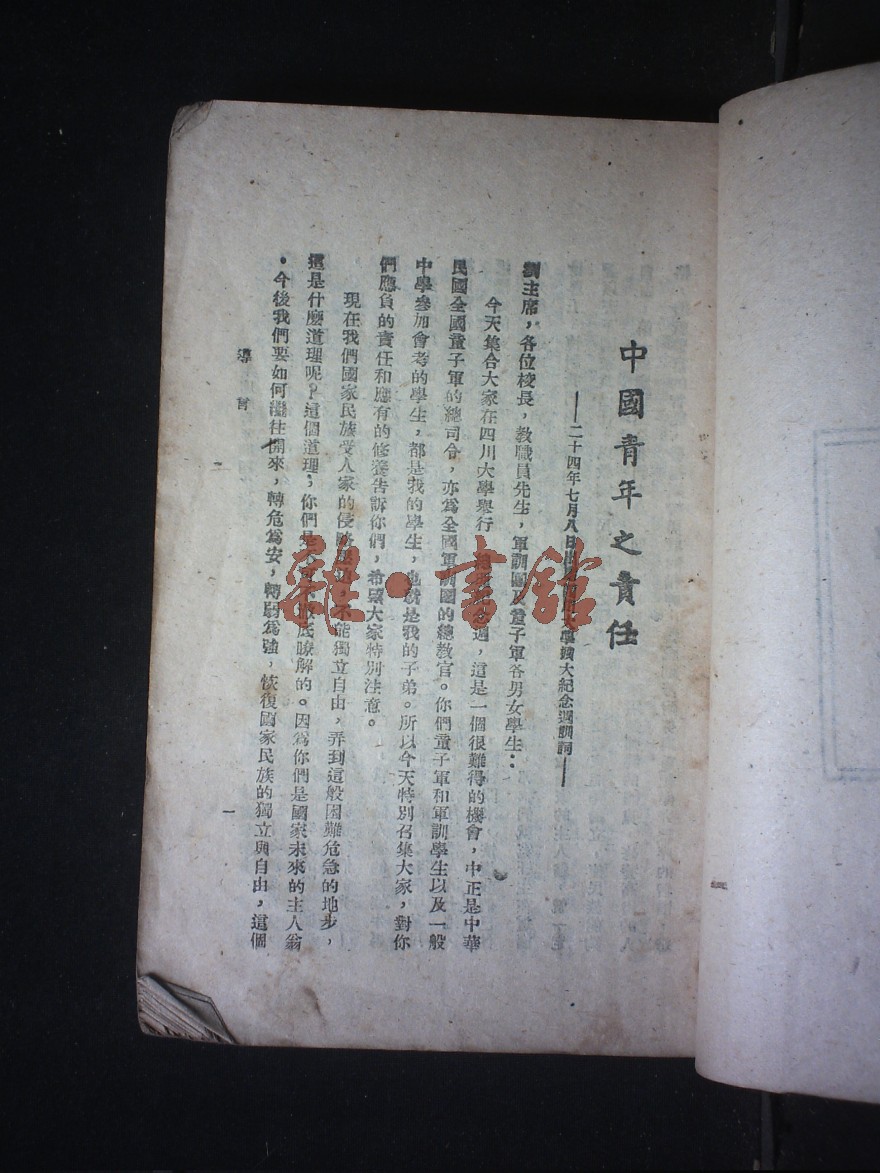 中國青年之責任
——二十四年七月八日出大學擴大紀念週訓詞——
劉主席，各位校長，教職員先生，軍訓團及童子軍各男女學生：
今天集合大家在四川大學舉行念週，這是一個很難得的機會，中正是中華
民國全國童子軍的總司令，亦爲全國軍訓團的總教官。你們童子軍和軍訓學生以及一般
中學參加會考的學生，都是我的學生，也就是我的子弟。所以今天特別召集大家，對你
們應負的責任和應有的修養告訴你們，希望大家特別注意。
現在我們國家民族受人家的侵，不能獨立自由，弄到這般困難危急的地步，
這是什麼道理呢？這個道理，你們是不可不徹底瞭解的。因爲你們是國家未來的主人翁
。今後我們要如何繼往開來，轉危爲安，轉弱爲強，恢復國家民族的獨立與自由，這個
導言
一
雜·書館